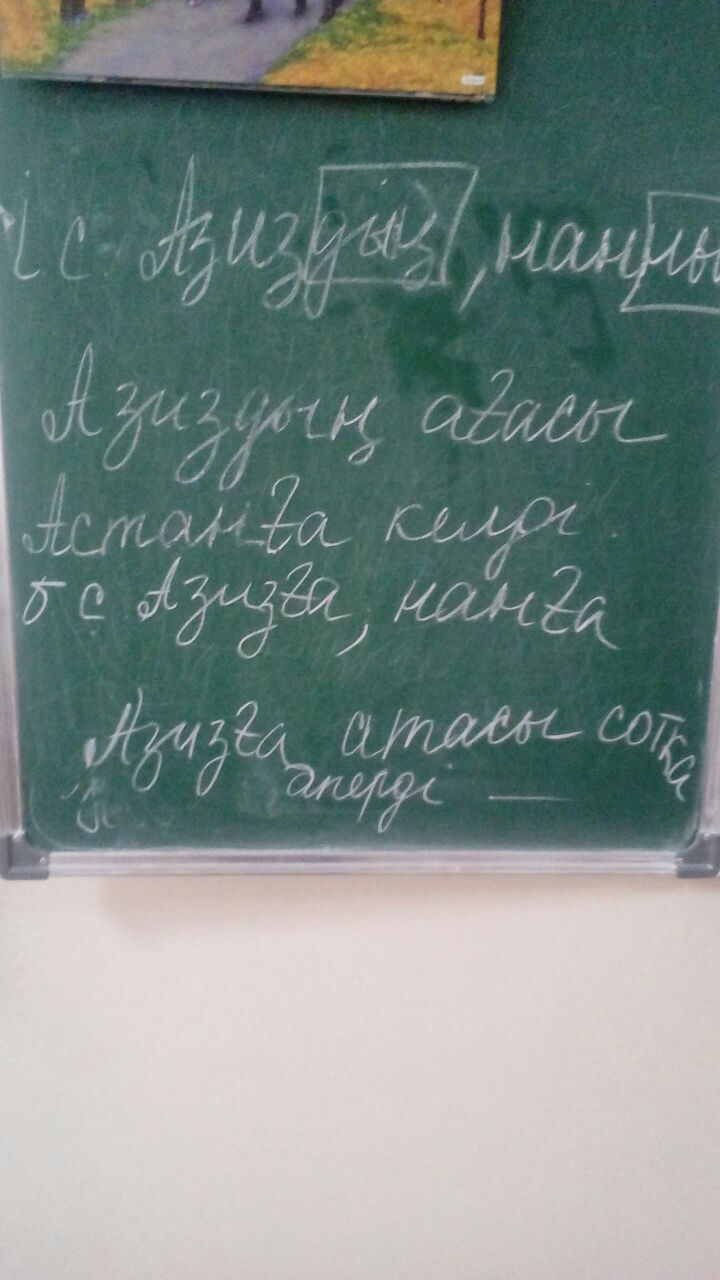 і с Азиздың, нанны
Азиздың ағасы
Астанға келді.
б с Азизға, нанға
Азизға атасы сотқа
әперді —